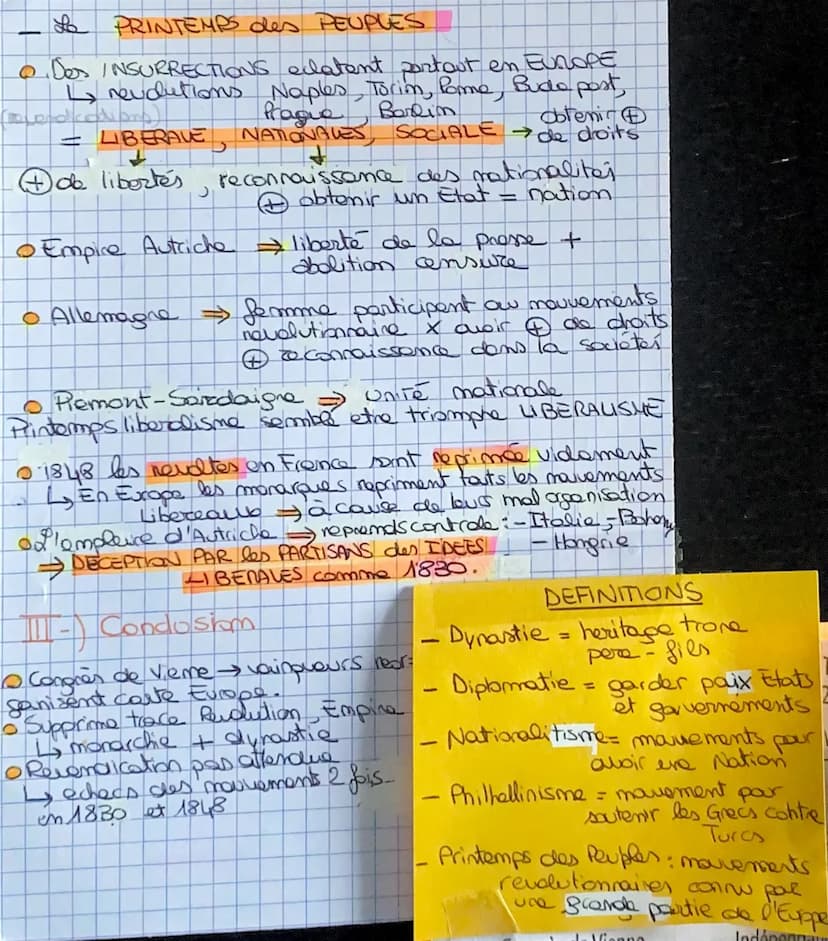 - Le PRINTEMPS des PEUPLES
Des INSURRECTIONS eclatent partout en EUROPE
↳ revolutions Naples, Turin, Rome, Budapest,
(revendications) Prague, Berlin
= LIBERALE, NATIONALES, SOCIALE → obtenir ⊕
de droits
⊕ de libertés, reconnaissance des nationalités
⊕ obtenir un Etat = nation
Empire Autriche ⇒ liberté de la presse +
abolition censure
Allemagne ⇒ femme participent au mouvements
revolutionnaire x avoir ⊕ de droits
⊕ reconnaissance dans la sociétés
Piemont-Sardaigne ⇒ unité nationale
Printemps liberalisme semblé etre triomphe LIBERALISME
1848 les revoltes en France sont reprimée violament
↳ En Europe les monarques repriment touts les mouvements
Libereaux ⇒ à cause de leurs mal organisation
L'empire d'Autriche ⇒ reprends controle : - Italie, Bohem
- Hongrie
⇒ DECEPTION PAR les PARTISANS des IDEES
LIBERALES comme 1830.
III-) Conclusion
Congrès de Vienne → vainqueurs reor-
ganisent carte Europe.
Supprime trace Revolution, Empire
↳ monarchie + dynastie
Revendication pas attendue
↳ echecs des mouvements 2 fois
en 1830 et 1848
DEFINITIONS
- Dynastie = heritage trone
pere - fils
- Diplomatie = garder paix Etats
et gouvernements
- Nationalitisme = mouvements pour
avoir une Nation
- Philhellinisme = mouvement pour
soutenir les Grecs contre
Turcs
- Printemps des Peuples : mouvements
revolutionnaires connu par
une grande partie de l'Europe